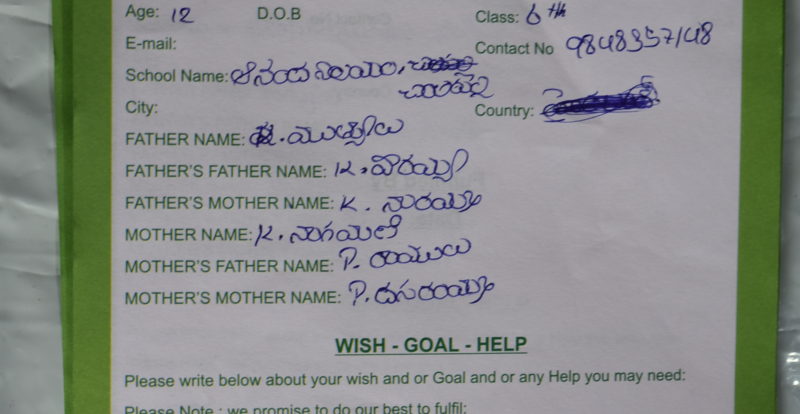 Age: 12 D.O.B Class: 6th
E-mail: Contact No 9848357148
School Name: ఆనంద నిలయం,
City: Country:
FATHER NAME: K. ముత్యాలు
FATHER'S FATHER NAME: K. వీరయ్య
FATHER'S MOTHER NAME: K.
MOTHER NAME: K. నాగమణి
MOTHER'S FATHER NAME: P. రాములు
MOTHER'S MOTHER NAME: P.
WISH - GOAL - HELP
Please write below about your wish and or Goal and or any Help you may need:
Please Note : we promise to do our best to fulfil: